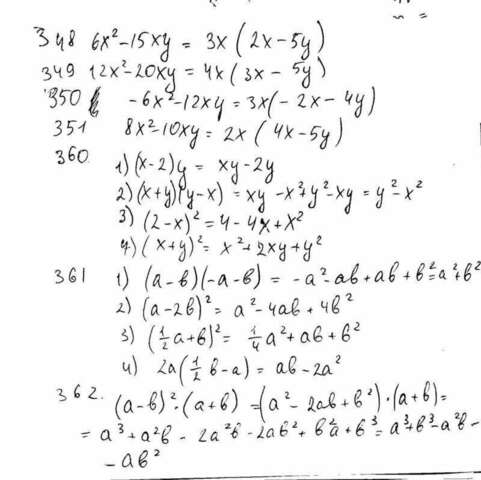 348 6x²-15xy = 3x(2x-5y)
349 12x²-20xy = 4x(3x-5y)
350 -6x²-12xy = 3x(-2x-4y)
351 8x²-10xy = 2x(4x-5y)
360. 1) (x-2)y = xy-2y
2) (x+y)(y-x) = xy-x²+y²-xy = y²-x²
3) (2-x)² = 4-4x+x²
4) (x+y)² = x²+2xy+y²
361 1) (a-b)(-a-b) = -a²-ab+ab+b²=a²+b²
2) (a-2b)² = a²-4ab+4b²
3) (1/2a+b)² = 1/4a²+ab+b²
4) 2a(1/2b-a) = ab-2a²
362. (a-b)²·(a+b) = (a²-2ab+b²)·(a+b)=
= a³+a²b-2a²b-2ab²+b²a+b³=a³+b³-a²b-
-ab²